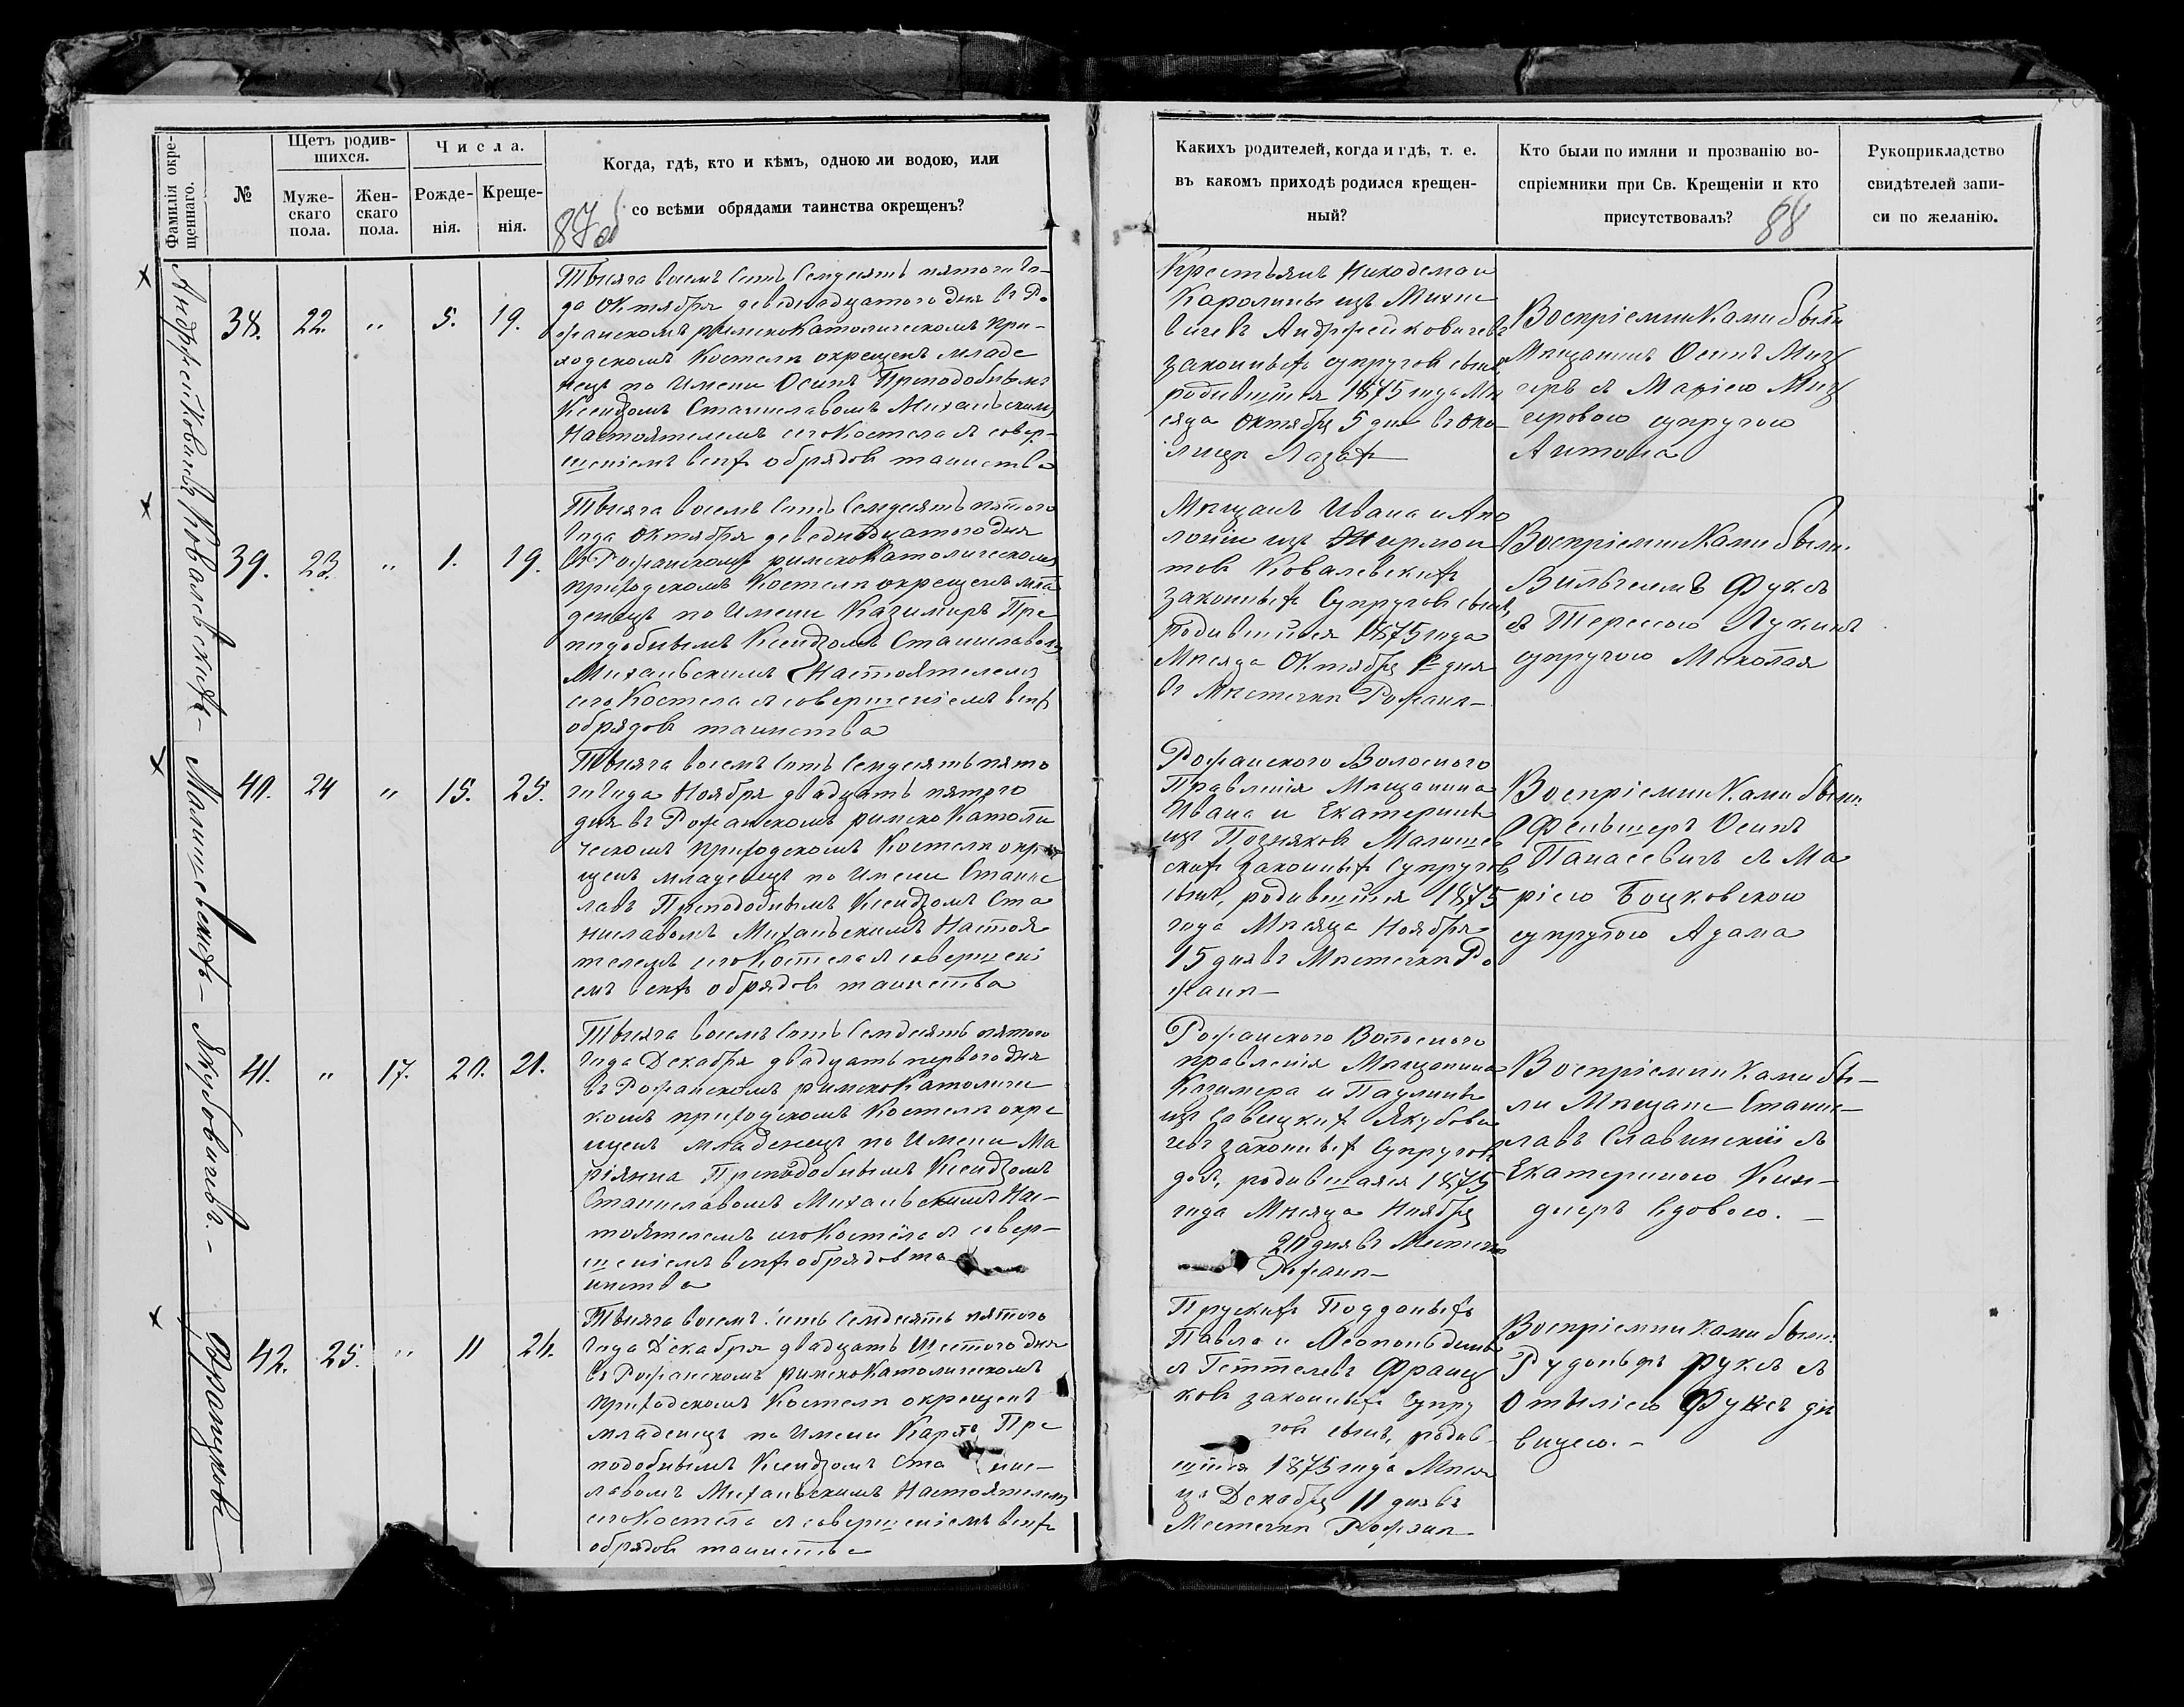 Фамилія окре-
щеннаго.
№
Щетъ родив-
шихся.
Муже-
скаго
пола.
Жен-
скаго
пола.
Числа.
Рожде-
нія.
Креще-
нія.
Когда, гдѣ, кто и кѣмъ, одною ли водою, или
со всѣми обрядами таинства окрещенъ?
87об
Андржейковичъ
38.
22.
"
5.
19.
Тысяча восемь сотъ семдесятъ пятого го-
да Октября девятнадцатого дня въ Ро
жанскомъ римскокатолическомъ при-
ходскомъ костелѣ окрещенъ младе
нецъ по имени Осипъ Преподобнымъ
Ксендзомъ Станиславомъ Михальскимъ
Настоятелемъ сего костела съ совер-
шеніемъ всѣхъ обрядовъ таинства
Ковалевскихъ
39.
23.
"
1.
19.
Тысяча восемь сотъ семдесятъ пятого
года октября девятнадцатого дня
въ Рожанскомъ римскокатолическомъ
приходскомъ костелѣ окрещенъ мла
денецъ по имени Казимиръ Пре
подобнымъ Ксендзомъ Станиславомъ
Михальскимъ Настоятелемъ
сего костела съ совершеніемъ всѣхъ
обрядовъ таинства
Малишевскихъ
40.
24
"
15.
25.
Тысяча восемь сотъ семдесятъ пято
го года Ноября двадцать пятого
дня въ Рожанскомъ римскокатоли
ческомъ приходскомъ костелѣ окре
щенъ младенецъ по имени Станис
лавъ Преподобнымъ Ксендзомъ Ста
ниславомъ Михальскимъ Настоя
телемъ сего костела съ совершені
емъ всѣхъ обрядовъ таинства
Якубовичевъ.
41.
"
17.
20.
21.
Тысяча восемь сотъ семдесятъ пятого
года Декабря двадцать первого дня
въ Рожанскомъ римскокатоличе
комъ приходскомъ костелѣ окре
щенъ младенецъ по имени Ма
ріянна Преподобнымъ Ксендзомъ
Станиславомъ Михальскимъ Нас-
тоятелемъ сего костела съ совер-
шеніемъ всѣхъ обрядовъ та
инства
Францковъ
42.
25.
"
11
26.
Тысяча восемь сотъ семдесятъ пятого
года Декабря двадцать шестого дня
въ Рожанскомъ римскокатолическомъ
приходскомъ костелѣ окрещенъ
младенецъ по имени Карлъ Пре
подобнымъ Ксендзомъ Ста нис-
лавомъ Михальскимъ Настоятелемъ
сего костела съ совершеніемъ всѣхъ
обрядовъ таинства
Какихъ родителей, когда и гдѣ, т. е.
въ какомъ приходѣ родился крещен-
ный?
Кто были по имяни и прозванію во-
спріемники при Св. Крещеніи и кто
присутствовалъ?
88
Рукоприкладство
свидѣтелей запи-
си по желанію.
Крестьянъ Никодема и
Каролины изъ Михне
вичевъ Андржейковичевъ
законныхъ супруговъ сынъ
родившійся 1875 года Мѣ
сяца Октября 5 дня въ око-
лицѣ
Воспріемниками были
Мѣщанинъ Осипъ
съ Маріею
супругою
Антона
Мѣщанъ Ивана и Апо
лоніи изъ
Ковалевскихъ
законныхъ супруговъ сынъ,
родившійся 1875 года
Мѣсяца Октября 1 дня
въ Мѣстечкѣ Рожанѣ-
Воспріемниками были.
Вильгелмъ Фуксъ
съ Тересою
супругою Миколая
Рожанского Волосного
Правленія Мѣщанина
Ивана и Екатерины
изъ Позняковъ Малишев
скихъ законныхъ супруговъ
сынъ, родившійся 1875
года Мѣсяца Ноября
15 дня въ Мѣстечкѣ Ро
жанѣ-
Воспріемниками были.
Фельшеръ Осипъ
Панасевичъ съ Ма
ріею Боцковскою
супругою Адама
Рожанского Волосного
правленія Мѣщанина
Казимера и Паулины
изъ Савицкихъ Якубови
чевъ законныхъ супруговъ
дочь, родившаяся 1875
года Мѣсяца Ноября
20 дня въ Мѣстечкѣ
Рожанѣ-
Воспріемниками бы-
ли Мѣщане Станис-
лавъ Славинскій съ
Екатериною Кин-
днеръ вдовою. -
Прускихъ Подданыхъ
Павла и Леопольдины
съ Геттелевъ Франц
ковъ законныхъ супру
говъ сынъ, родив-
шійся 1875 года Мѣся
ца Декабря 11 дня въ
Мѣстечкѣ Рожанѣ
Воспріемниками были.
Рудольфъ Фуксъ съ
Отыліею Фуксъ дѣ
вицею. -